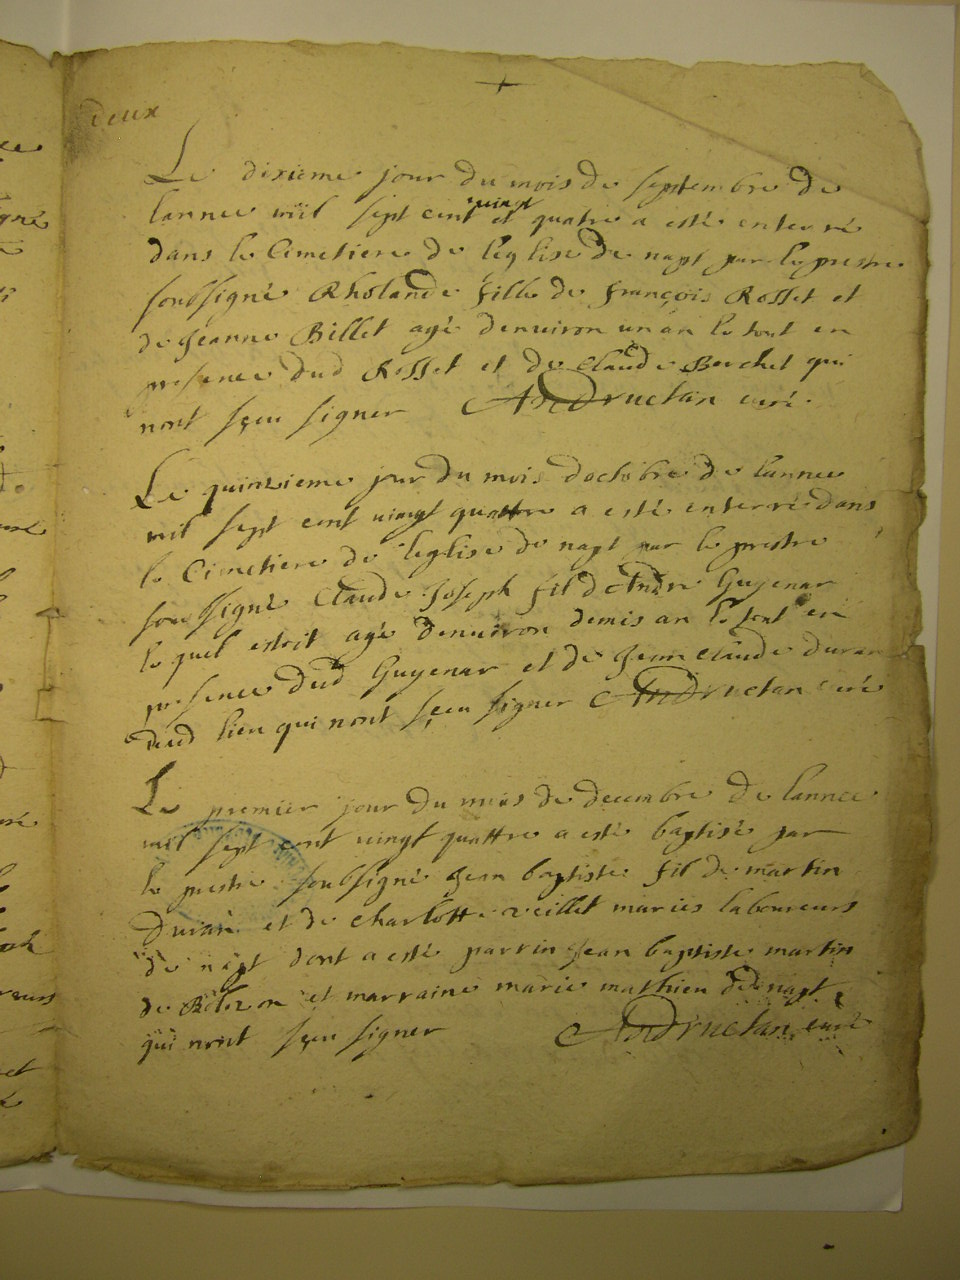 deux
Le dixieme jour du mois de septembre de
lannee mil sept cent vingt et quatre a esté enterré
dans le Cimetiere de leglise de napt par le prestre
soubsigné Rholande fille de françois Rosset et
de Jeanne Billet agé denuiron un an le tout en
presence dud Rosset et de Claude Berchet qui
nont sçeu signer Andructan curé.
Le quinzieme jour du mois doctobre de lannee
mil sept cent vingt quattre a esté enterré dans
le Cimetiere de leglise de napt par le prestre
soubsigné Claude Joseph fil dAndré Guyenar
le quel estoit agé denuiron demis an le tout en
presence dud Guyenar et de Jean Claude duran
dud lieu qui nont sçeu signer Andructan curé
Le premier jour du mois de decembre de lannee
mil sept cent vingt quattre a esté baptisé par
le prestre soubsigné Jean baptiste fil de martin
Duran et de Charlotte veillet mariés laboureurs
de napt dont a esté parrin Jean baptiste martin
de et marraine marie mathieu de napt
qui nont sçeu signer Andructan curé